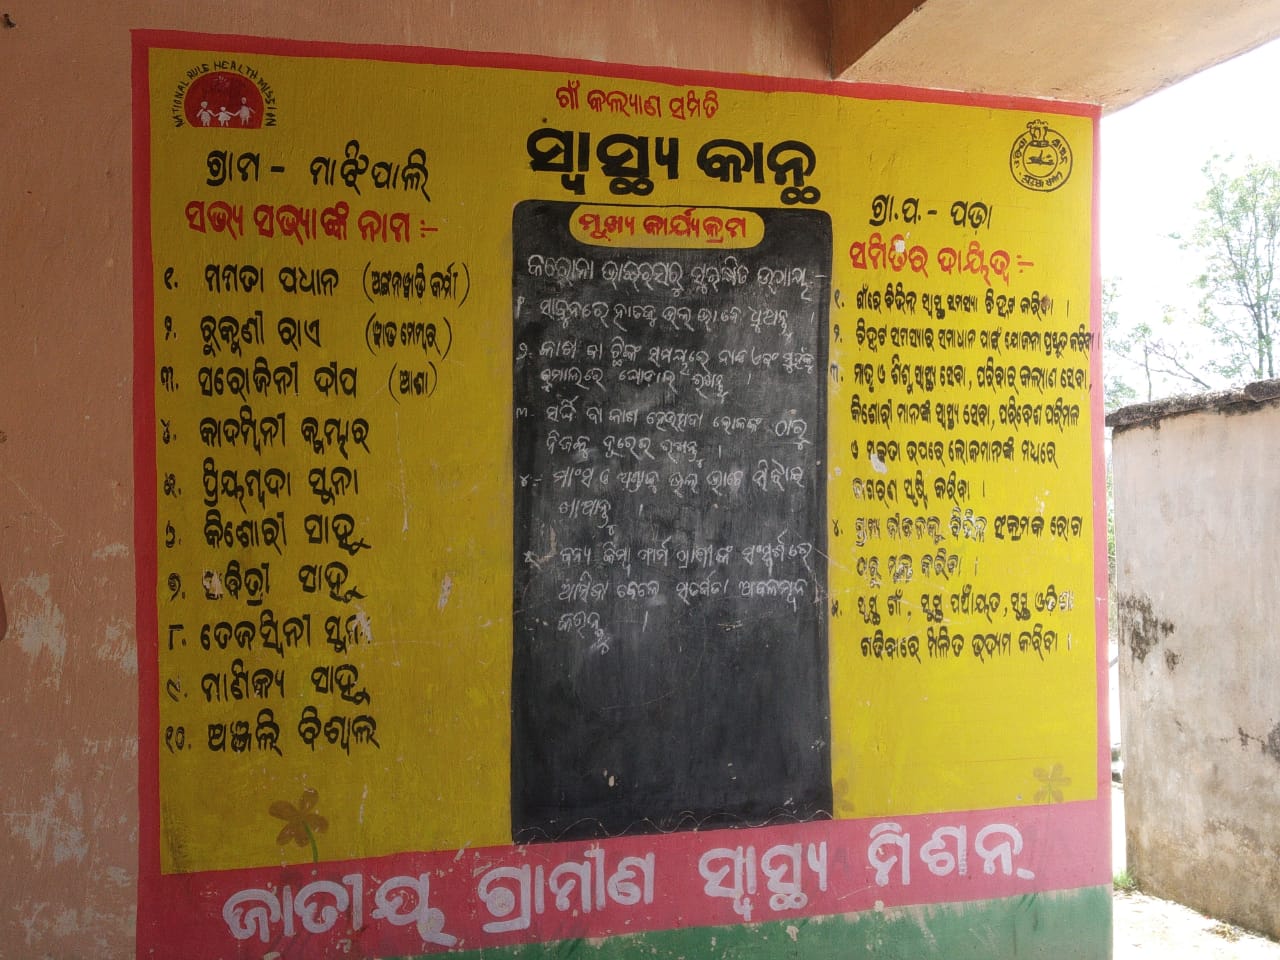 NATIONAL RULE HEALTH MISSION
ଗାଁ କଲ୍ୟାଣ ସମିତି
ସ୍ୱାସ୍ଥ୍ୟ କାନ୍ଥ
ଗ୍ରାମ - ମାଝିପାଲି
ସଭ୍ୟ ସଭ୍ୟାଙ୍କ ନାମ :-
୧. ମମତା ପଧାନ (ଅଙ୍ଗନୱାଡ଼ି କର୍ମୀ)
୨. ରୁକ୍ମୁଣୀ ରାଏ (ୱାଡ ମେମ୍ବର)
୩. ସରୋଜିନୀ ଦୀପ (ଆଶା)
୪. କାଦମ୍ବିନୀ କୁମ୍ଭାର
୫. ପ୍ରିୟମ୍ବଦା ସୁନା
୬. କିଶୋରୀ ସାହୁ
୭. ସାବିତ୍ରୀ ସାହୁ
୮. ତେଜସ୍ୱିନୀ ସୁନା
୯. ମାଣିକ୍ୟ ସାହୁ
୧୦. ଅଞ୍ଜଲି ବିଶ୍ୱାଲ
ମୁଖ୍ୟ କାର୍ଯ୍ୟକ୍ରମ
କରୋନା ଭାଇରସରୁ ସୁରକ୍ଷିତ ଉପାୟ :-
୧ ସାବୁନରେ ହାତକୁ ଭଲ ଭାବେ ଧୁଅନ୍ତୁ ।
୨:- କାଶ ବା ଛିଙ୍କ ସମୟରେ ନାକ ଏବଂ ମୁହଁକୁ
ରୁମାଲରେ ଘୋଡାଇ ରଖନ୍ତୁ ।
୩:- ସର୍ଦ୍ଦି ବା କାଶ ହେଉଥିବା ଲୋକଙ୍କ ଠାରୁ
ନିଜକୁ ଦୂରେଇ ରଖନ୍ତୁ ।
୪:- ମାଂସ ଓ ଅଣ୍ଡାକୁ ଭଲ ଭାବେ ସିଝାଇ
ଖାଆନ୍ତୁ ।
୫:- ବନ୍ୟ କିମ୍ବା ଫାର୍ମ ପ୍ରାଣୀଙ୍କ ସଂସ୍ପର୍ଶରେ
ଆସିବା ବେଳେ ସତର୍କତା ଅବଲମ୍ବନ
କରନ୍ତୁ ।
ଗ୍ରା.ପ. - ପଡ଼ା
ସମିତିର ଦାୟିତ୍ୱ :-
୧. ଗାଁରେ ବିଭିନ୍ନ ସ୍ୱାସ୍ଥ୍ୟ ସମସ୍ୟା ଚିହ୍ନଟ କରିବା ।
୨. ଚିହ୍ନଟ ସମସ୍ୟାର ସମାଧାନ ପାଇଁ ଯୋଜନା ପ୍ରସ୍ତୁତ କରିବା ।
୩. ମାତୃ ଓ ଶିଶୁ ସ୍ୱାସ୍ଥ୍ୟ ସେବା, ପରିବାର କଲ୍ୟାଣ ସେବା,
କିଶୋରୀ ମାନଙ୍କ ସ୍ୱାସ୍ଥ୍ୟ ସେବା, ପରିବେଶ ପରିମଳ
ଓ ଉପରେ ଲୋକମାନଙ୍କ ମଧ୍ୟରେ
ଜାଗରଣ ସୃଷ୍ଟି କରିବା ।
୪. ଗ୍ରାମ୍ୟ ଜୀବନକୁ ବିଭିନ୍ନ ସଂକ୍ରମକ ରୋଗ
ଠାରୁ ମୁକ୍ତ କରିବା ।
୫. ସୁସ୍ଥ ଗାଁ, ସୁସ୍ଥ ପଞ୍ଚାୟତ, ସୁସ୍ଥ ଓଡିଶା
ଗଢିବାରେ ମିଳିତ ଉଦ୍ୟମ କରିବା ।
ଜାତୀୟ ଗ୍ରାମୀଣ ସ୍ୱାସ୍ଥ୍ୟ ମିଶନ